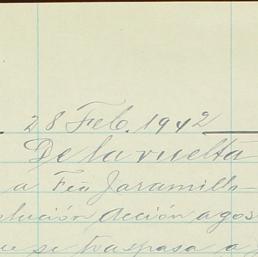 28 Feb. 1942
De la vuelta
a Feo Jaramillo
olución acción agos
ue se traspasa a